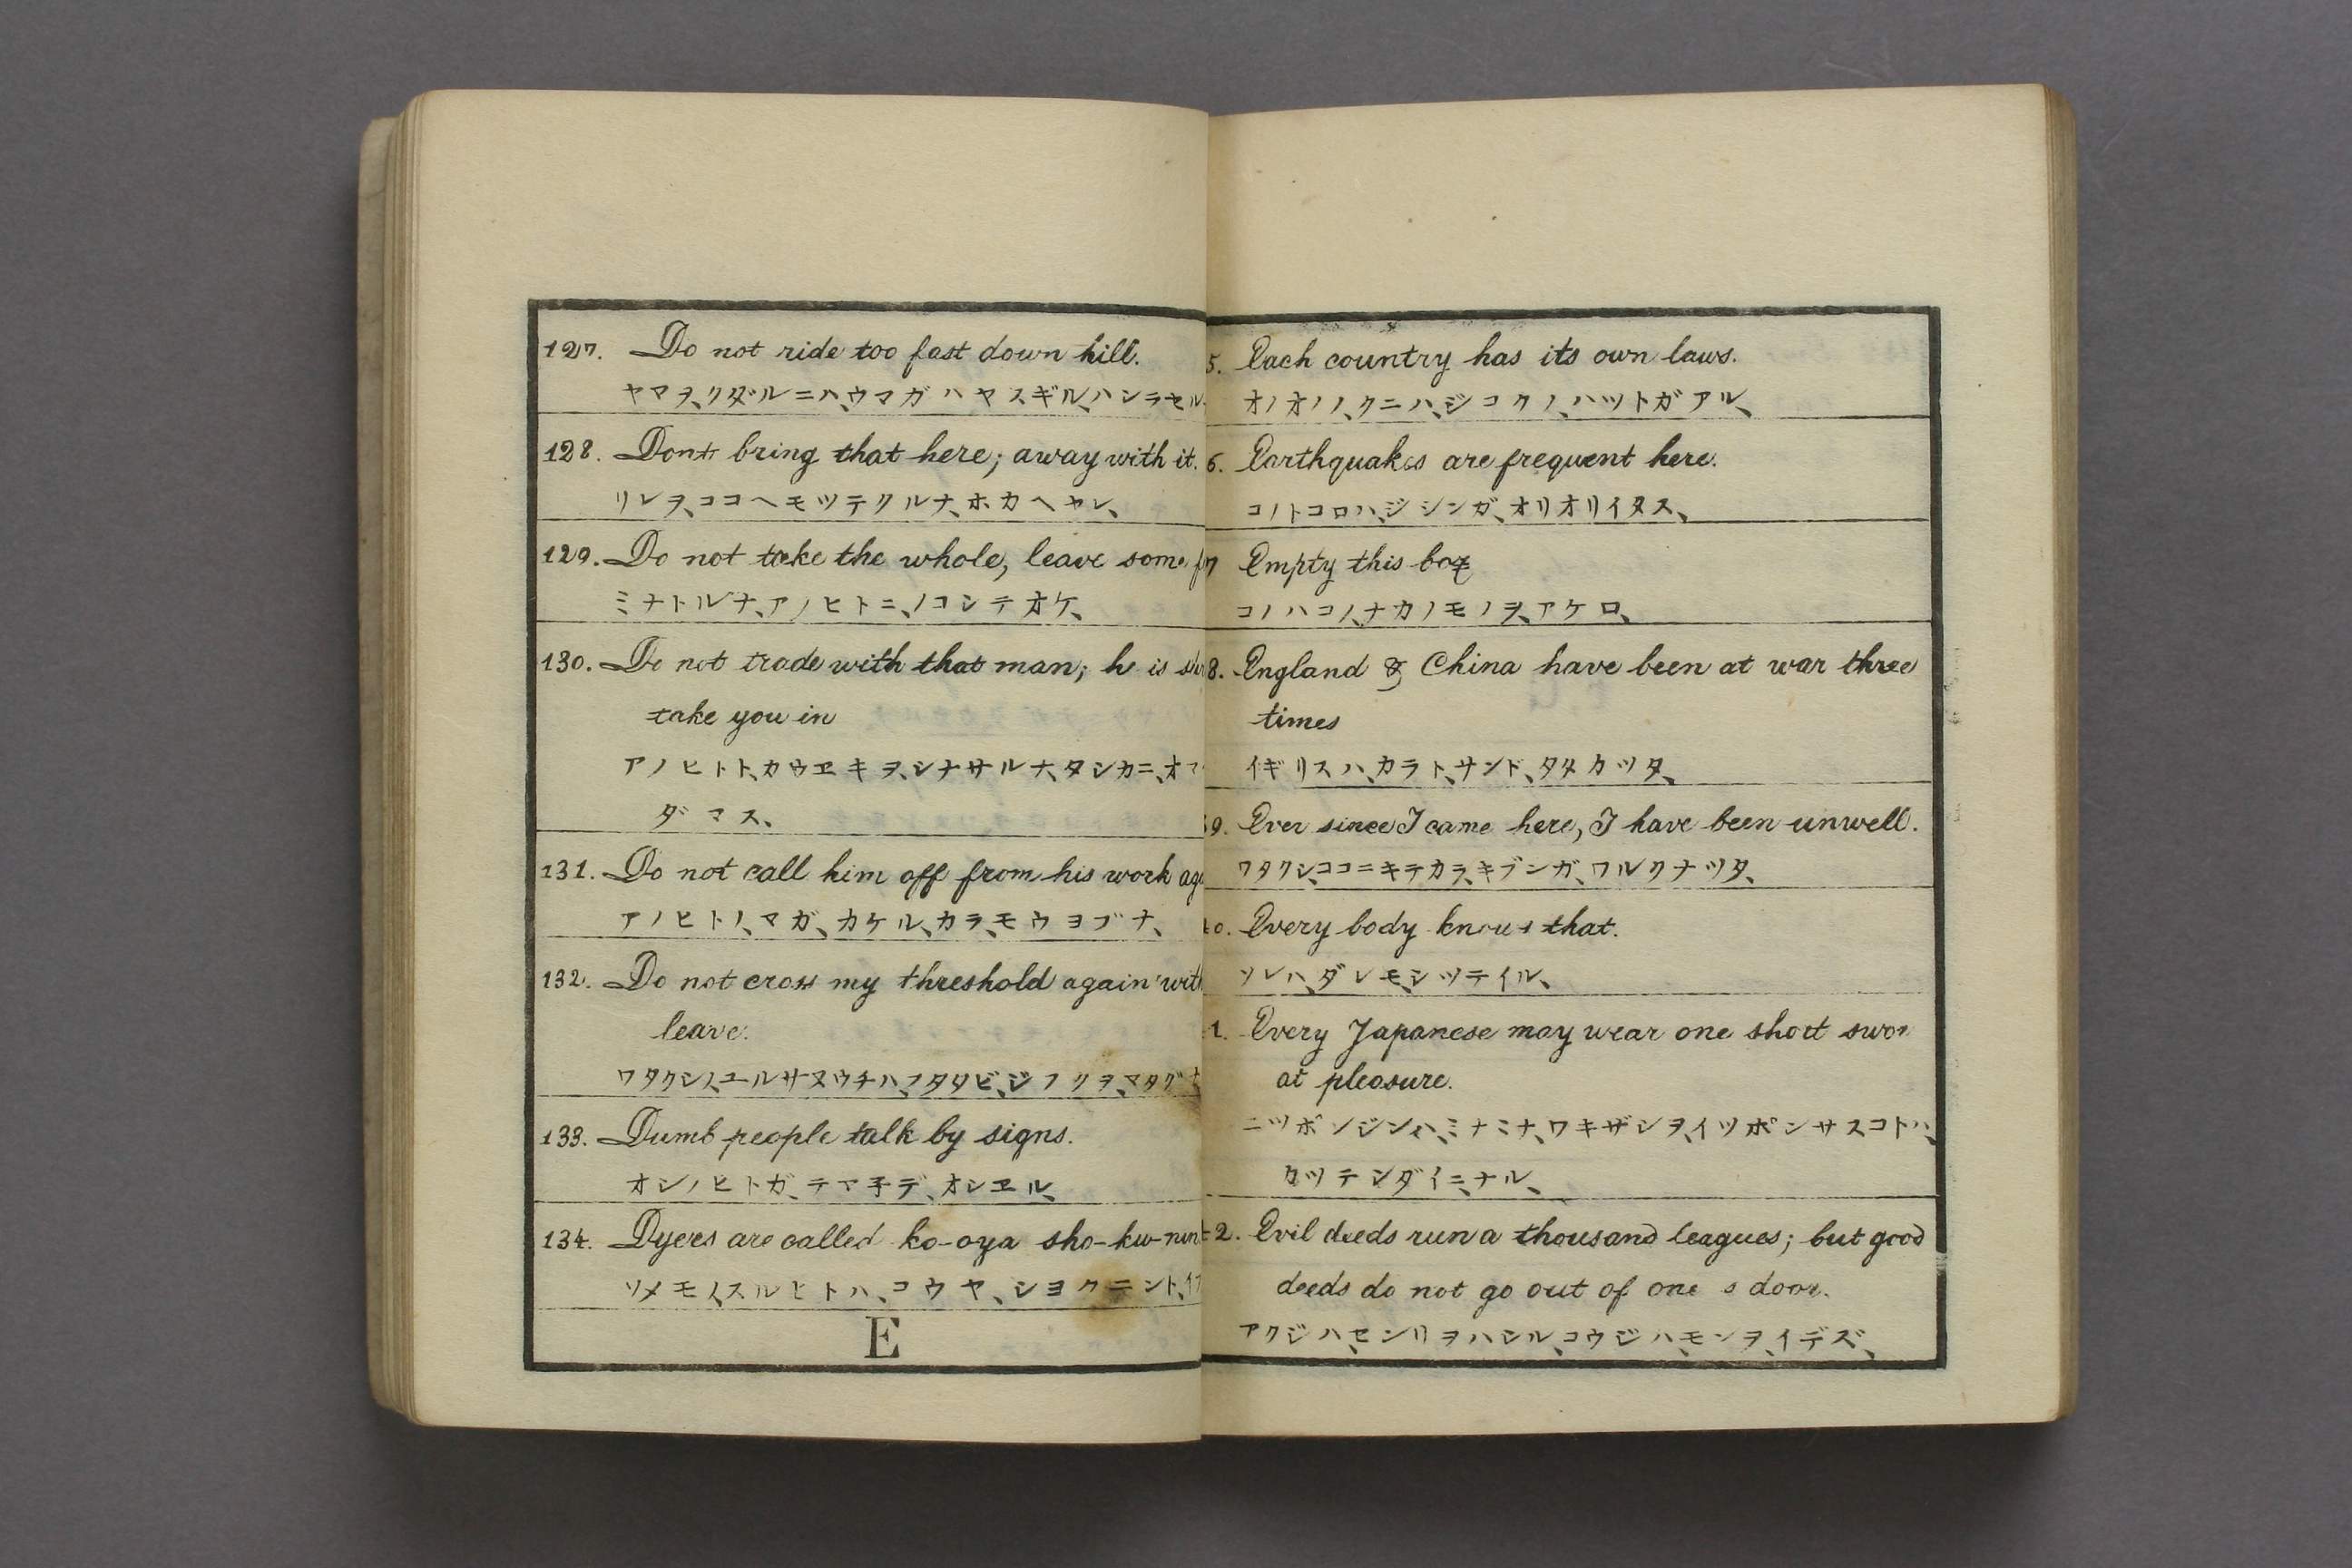 127. Do not ride too fast down hill.
ヤマヲ、クダルニハ、ウマガハヤスギル、ハシラセル
128. Dont bring that here; away with it.
リレヲ、ココヘモツテクルナ、ホカヘヤレ、
129. Do not take the whole, leave some
ミナトルナ、アノヒトニ、ノコシテオケ、
130. Do not trade with that man; he is
take you in
アノヒトト、カウヱキヲ、シナサルナ、タシカニ、オマ
ダマス、
131. Do not call him off from his work
アノヒトノ、マガ、カケル、カラ、モウヨブナ、
132. Do not cross my threshold again
leave.
ワタクシノ、ユールサヌウチハ、フタタビ、ジフクヲ、マタグ
133. Dumb people talk by signs.
オシノヒトガ、テマ子デ、オシヱル、
134. Dyers are called ko-oya sho-ku-nin
ソメモノ、スルヒトハ、コウヤ、シヨクニント、
E
5. Each country has its own laws.
オノオノノ、クニハ、ジコクノ、ハツトガアル、
6. Earthquakes are frequent here.
コノトコロハ、ジシンガ、オリオリイタス、
7 Empty this box
コノハコノ、ナカノモノヲ、アケロ、
8. England & China have been at war three
times
イギリスハ、カラト、サンド、タタカツタ、
9. Ever since I came here, I have been unwell.
ワタクシ、ココニキテカラ、キブンガ、ワルクナツタ、
0. Every body knows that.
ソレハ、ダレモ、シツテイル、
1. Every Japanese may wear one short swor
at pleasure.
ニツポンジンハ、ミナミナ、ワキザシヲ、イツポンサスコトハ、
カツテンダイニ、ナル、
2. Evil deeds run a thousand leagues; but good
deeds do not go out of one s door.
アクジハ、センリヲハシル、コウジハ、モンヲ、イデズ、